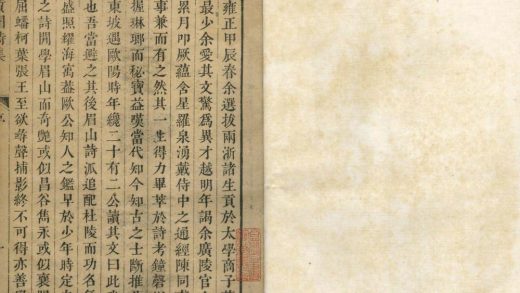 雍正甲辰春余選拔兩浙諸生貢於太學商子
最少余愛其文驚為異才越明年謁余廣陵官
累月叩厥蘊含星羅泉湧戴侍中之通經陳同
事兼而有之然其一生得力畢萃於詩考鐘磬
握琳瑯而秘寶益嘆當代知今知古之士斷推
東坡遇歐陽時年纔二十有二公讀其文曰此
也吾當避之其後眉山詩派追配杜陵而功名
盛照耀海寓益歐公知人之鑑早於少年時定
之詩閒學眉山而奇艷或似昌谷雋永或似襄
屈蟠柯葉張王至欲尋聲捕影終不可得亦善